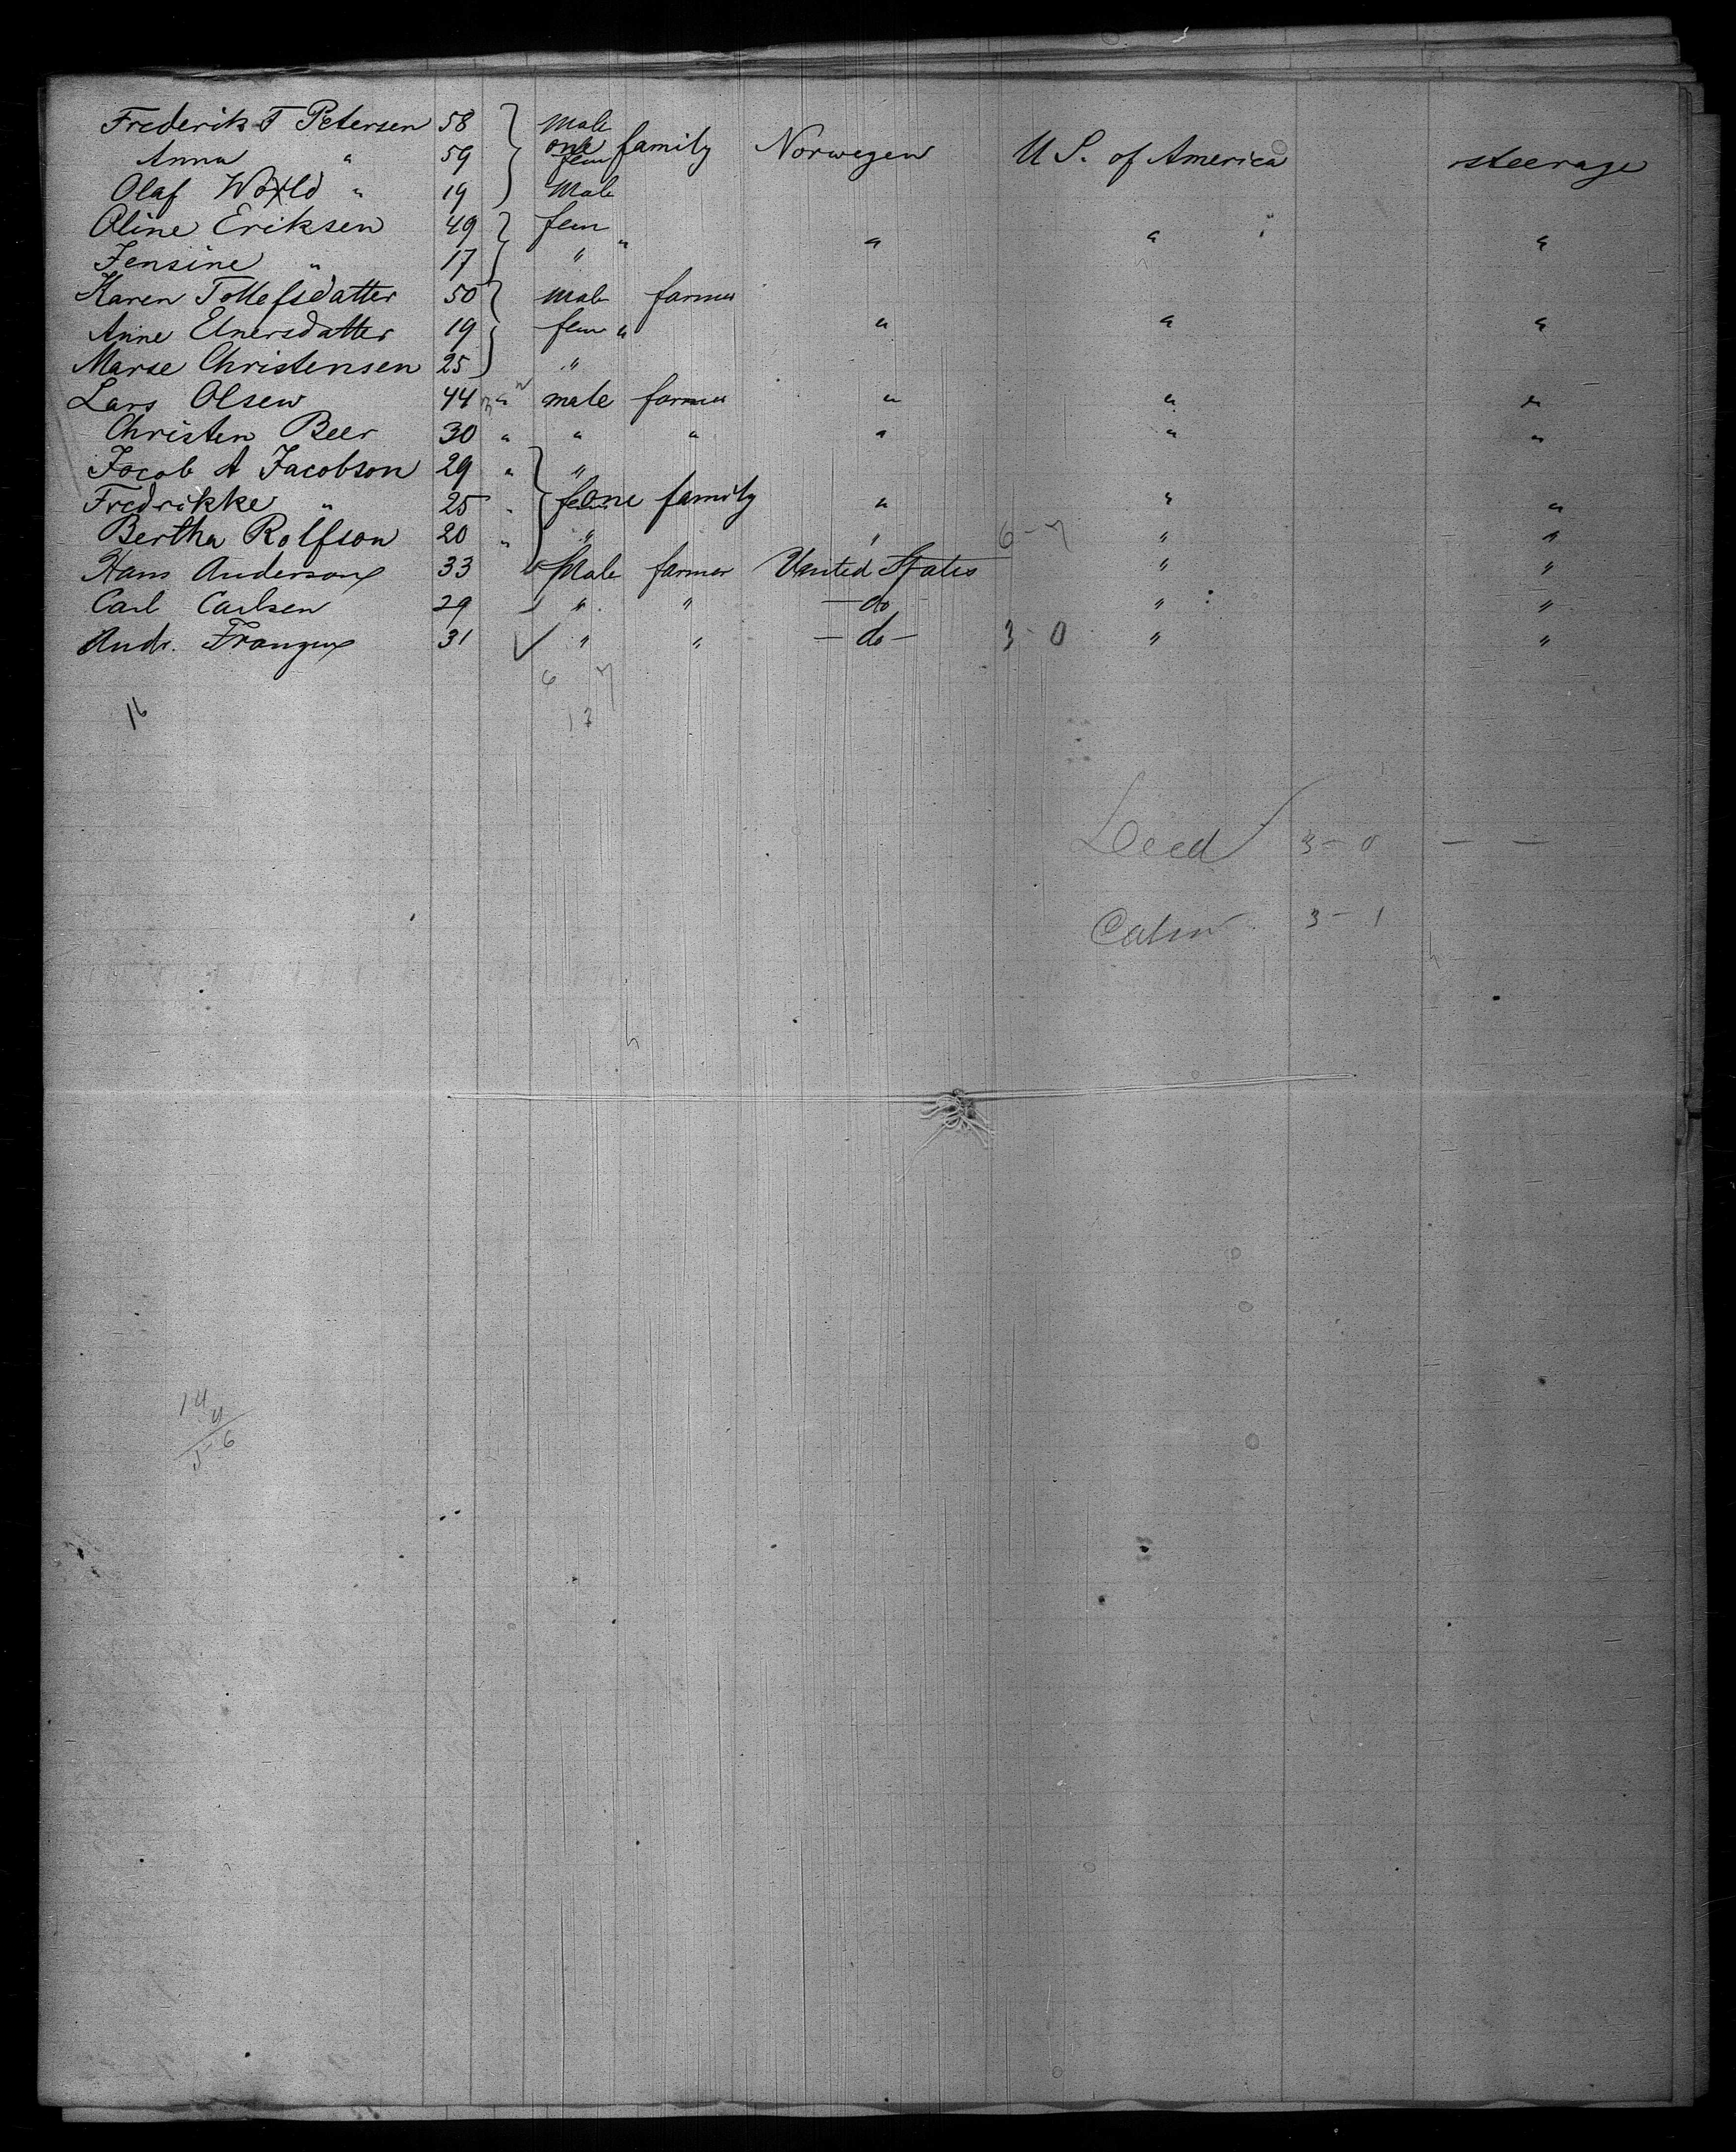 Frederik T Petersen 58 Male
Anna " 59 one family fem Norwegen U S. of America steerage
Olaf World " 19 Male
Oline Eriksen 49 fem " " " "
Jensine " 17 "
Karen Tollefsdatter 50 male farmer
Anne Elnersdatter 19 fem " " " "
Marse Christensen 25 "
Lars Olsen 44 " male farmer " " "
Christen Beer 30 " " " " " "
Jacob A Jacobson 29 " "
Fredrikke " 25 " fem one family " " "
Bertha Rolfson 20 " " " 6-7 " "
Hans Anderson 33 Male farmer United States " "
Carl Carlsen 29 " " -do- " "
Andr. 31 " " -do- 3-0 " "
6 7
16
13
3-0 - -
3-1
14
4
56